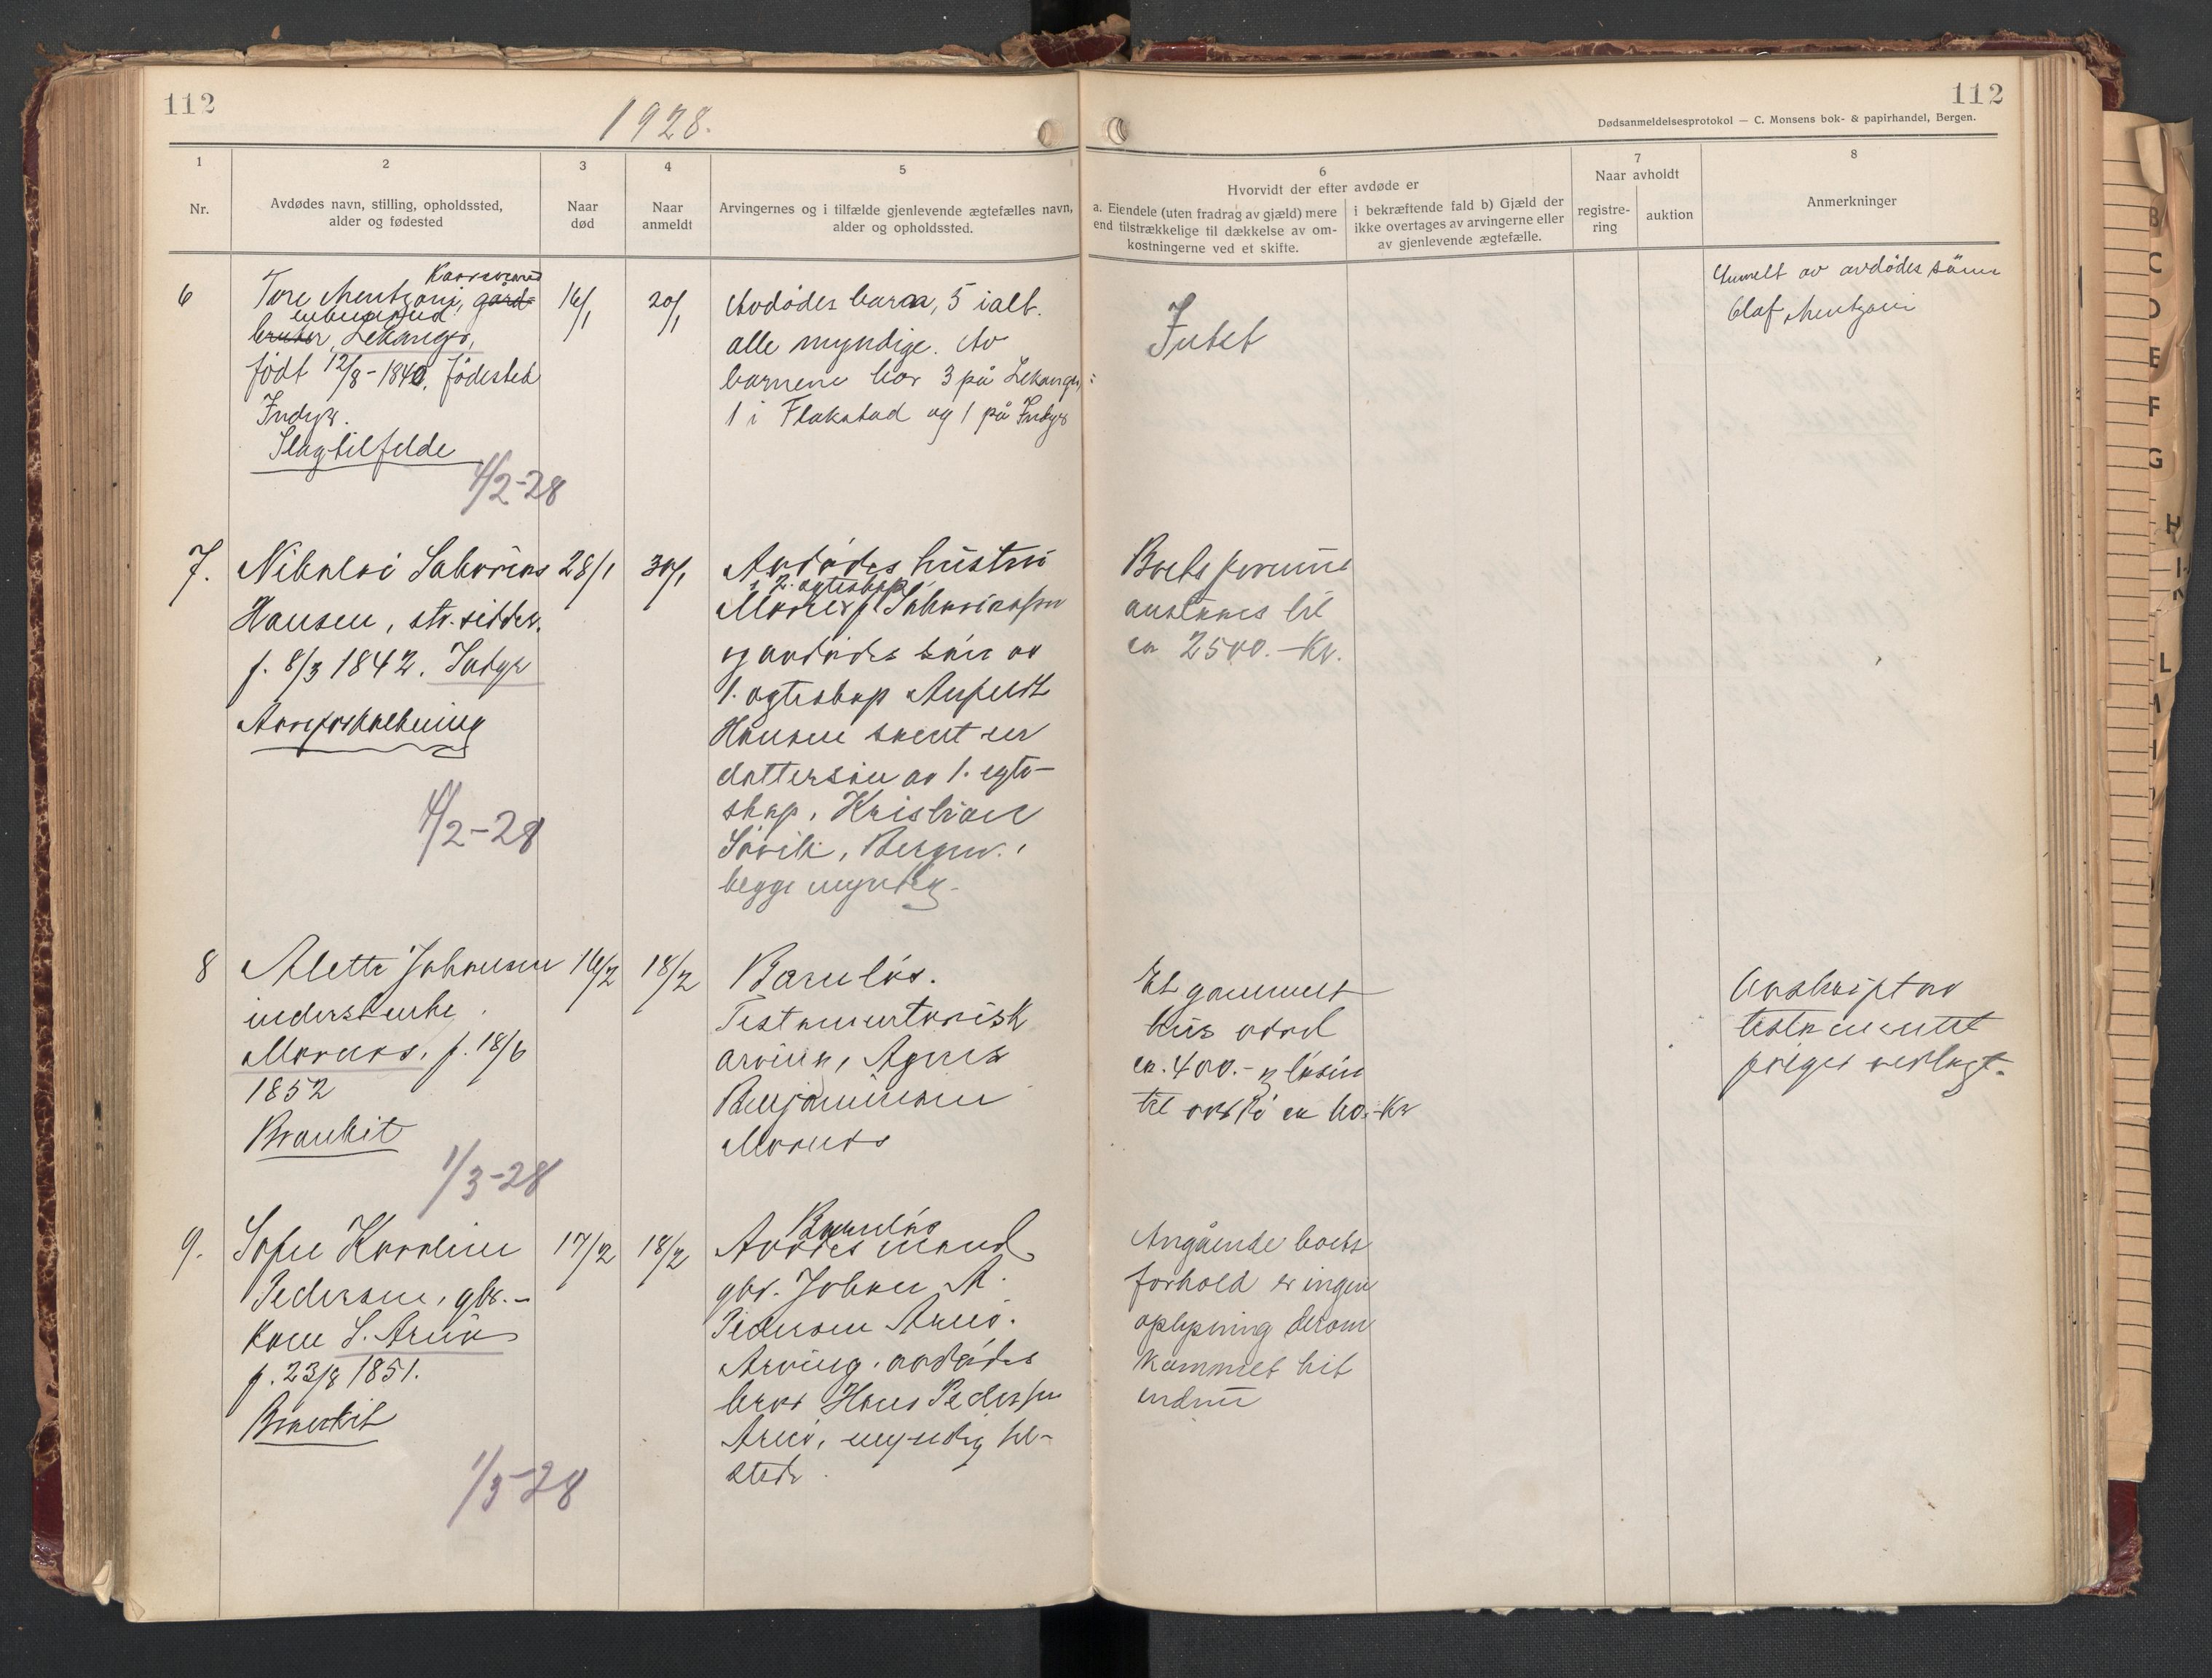 112
1928.
112
Dødsanmeldelsesprotokol — C. Monsens bok- & papirhandel, Bergen.
1
Nr.
2
Avdødes navn, stilling, opholdssted,
alder og fødested
3
Naar
død
4
Naar
anmeldt
5
Arvingernes og i tilfælde gjenlevende ægtefælles navn,
alder og opholdssted.
6
Hvorvidt der efter avdøde er
a. Eiendele (uten fradrag av gjæld) mere
end tilstrækkelige til dækkelse av om-
kostningerne ved et skifte.
i bekræftende fald b) Gjæld der
ikke overtages av arvingerne eller
av gjenlevende ægtefælle.
7
Naar avholdt
registre-
ring
auktion
8
Anmerkninger
6
Tore Mentzoni, gård-
bruker, Lekanger,
født 12/8-1840, födested
Indyr.
Slagtilfelde
4/2-28
16/1
20/1
Avdödes barn, 5 ialt.
alle myndige. Av
barnene bor 3 på Lekanger,
1 i Flakstad og 1 på Indyr
Intet
Anmelt av avdödes sönn
Olaf Mentzoni
7.
Nikolai
Hansen,
f. 8/3 1842. Indyr
Aareforkalkning
4/2-28
28/1
30/1
Avdödes hustru
i 2. egteskap
og avdödes sön av
1. egteskap
Hansen samt en
dattersön av 1. egte-
skap, Kristian
Sövik, Bergen.
begge myndig
Boets formue
anslaaes til
ca 2500.- Kr.
8
Alette Johansen
inderstenke
Mornes, f. 18/6
1852
Bronkit
1/3-28
16/2
18/2
Barnlös.
Testamentarisk
arving, Agnes
Benjaminsen
Mornes
Et gammelt
hus værd
ca. 400.- og lösöre
til værdi ca 60.- Kr
Avskrift av
testamentet
fölger vedlagt.
9.
Sofie Karoline
Pedersen, gbr.-
kone S. Arnö
f. 23/8 1851.
Bronkit
1/3-28
17/2
18/2
Barnlös
Avdödes mand
gbr. Johan A.
Pedersen Arnö.
Arving. avdödes
bror Hans Pedersen
Arnö, myndig til-
stede.
Angående boets
forhold er ingen
oplysning derom
kommet hit
endnu
B
C
D
E
F
G
H
L